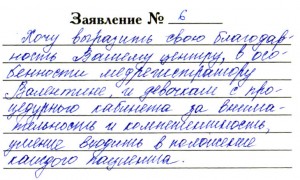 Заявление № 6
Хочу выразить свою благодар-
ность Вашему центру, в осо-
бенности медрегистратору
Валентине, и девочкам с про-
цедурного кабинета за внима-
тельность и компетентность,
умение входить в положение
каждого пациента.